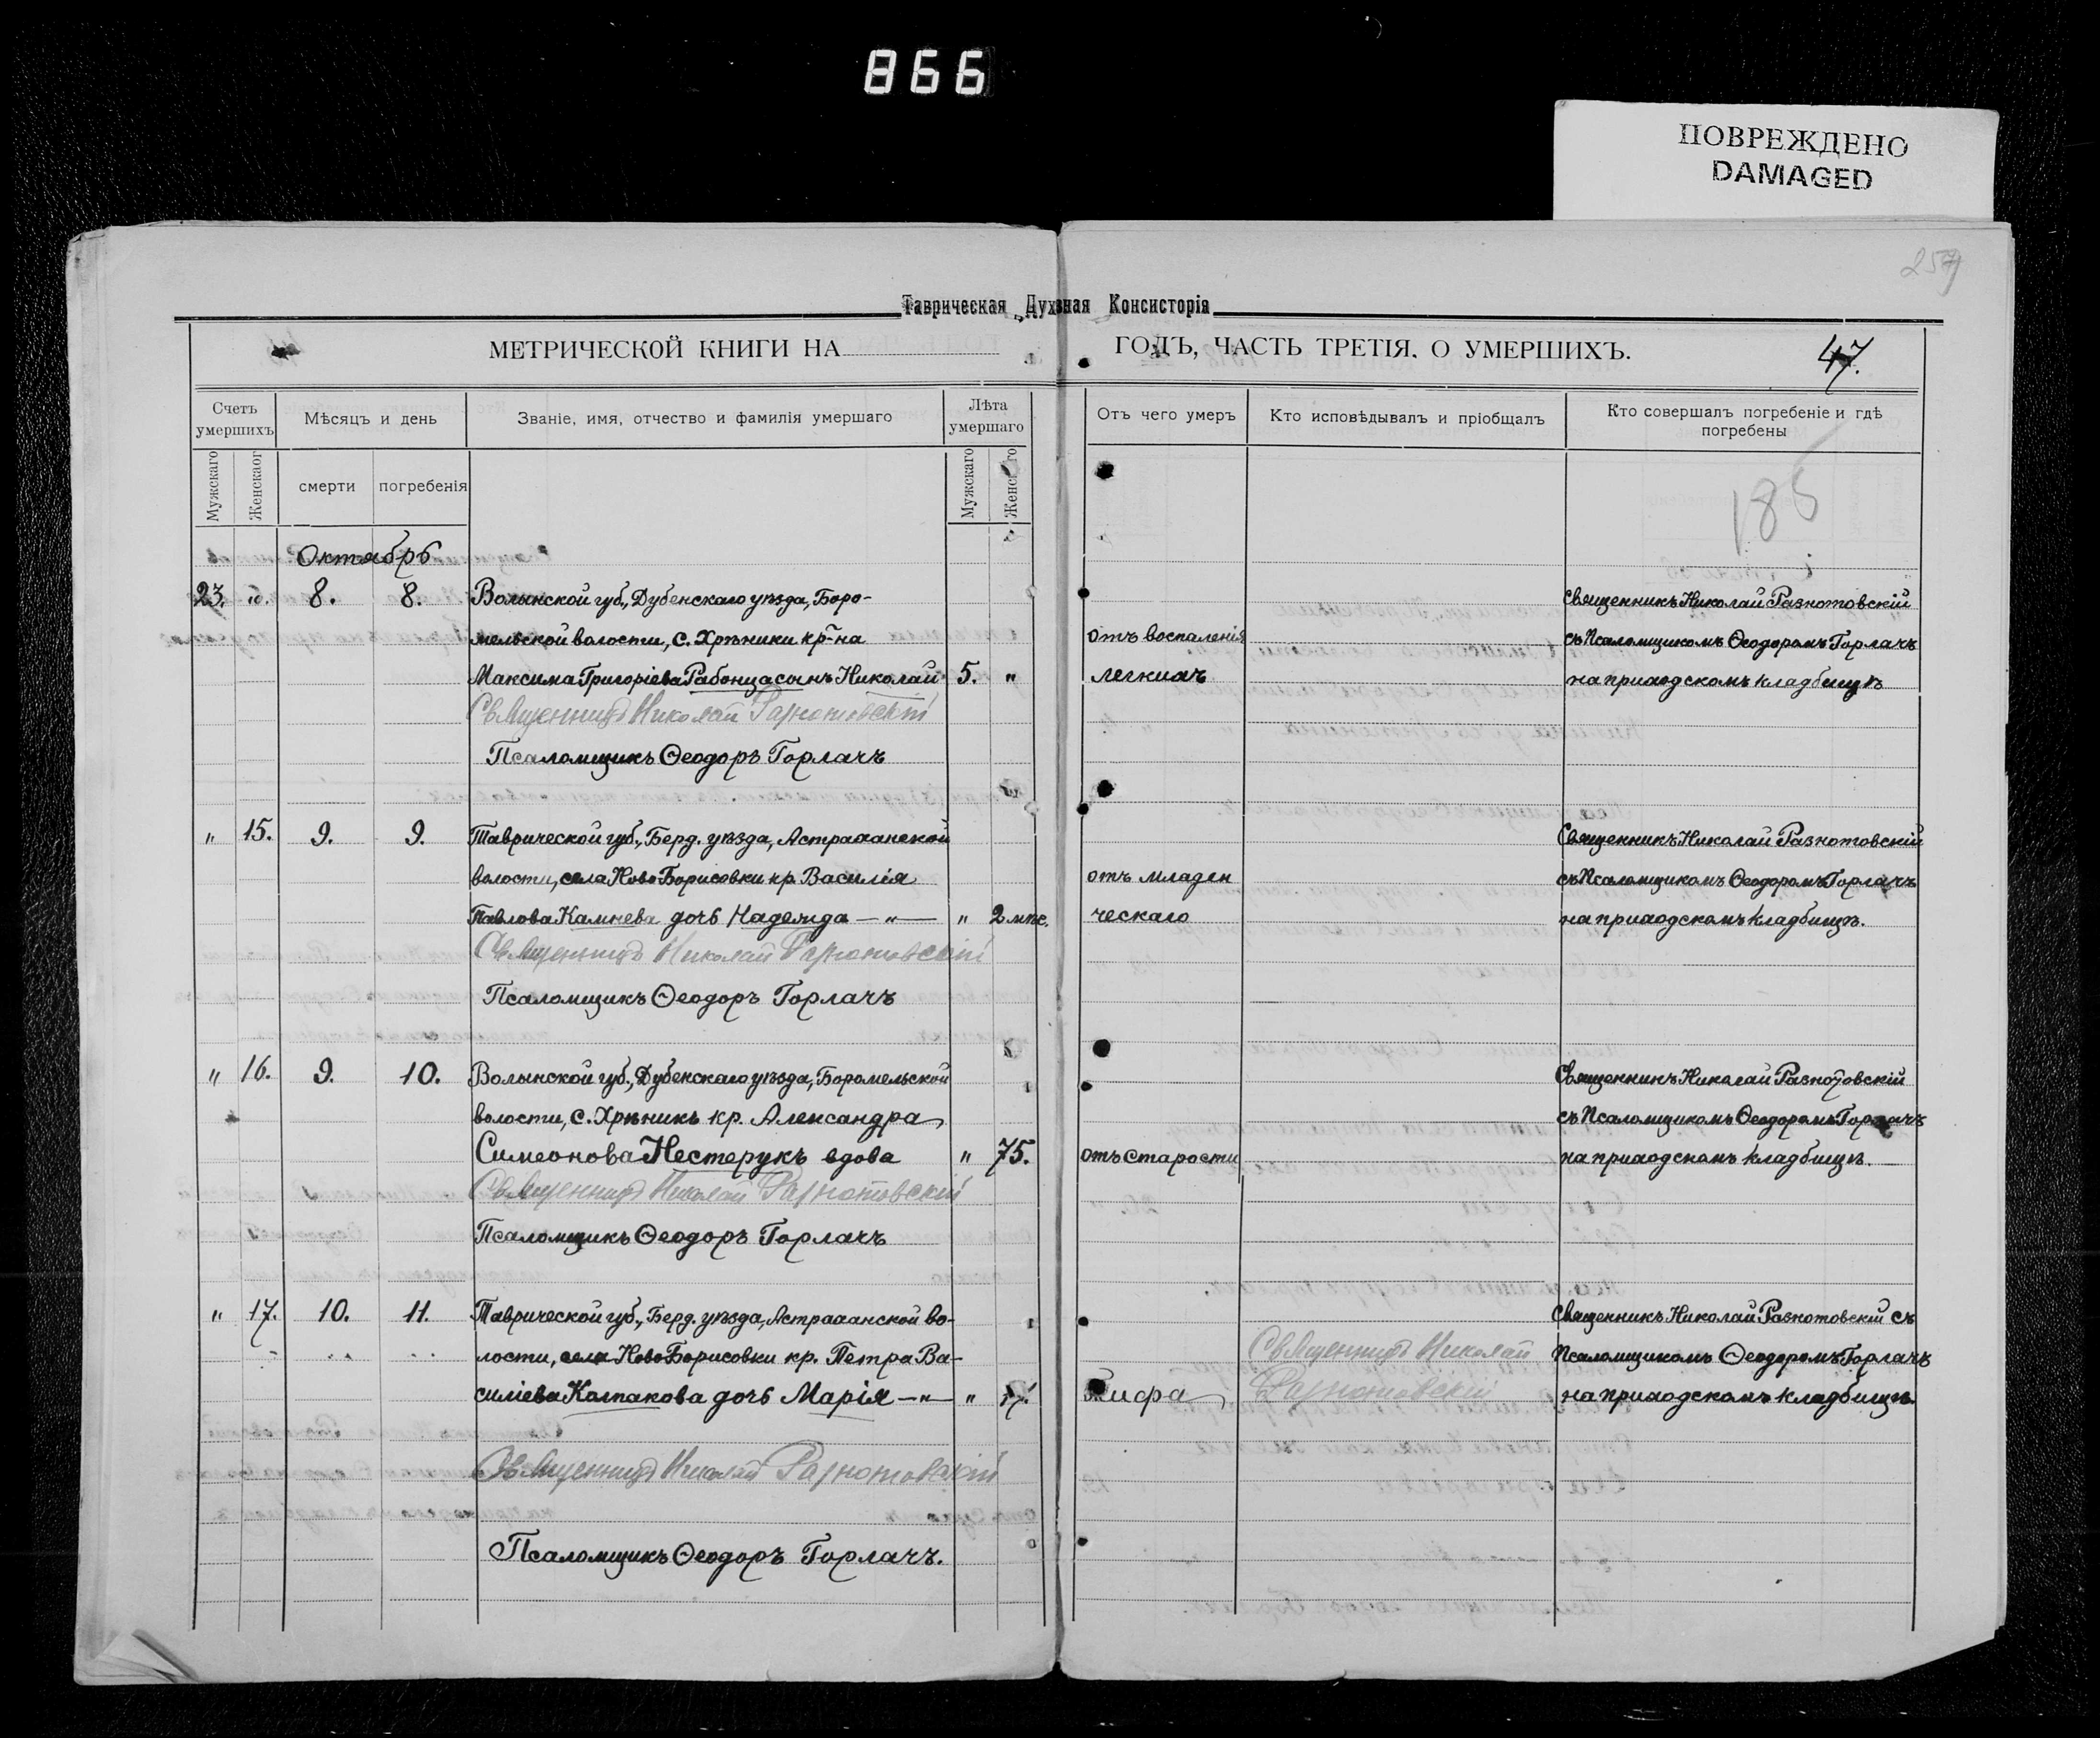 866
ПОВРЕЖДЕНО
DAMAGED
257
Таврическая Духвная Консисторія
МЕТРИЧЕСКОЙ КНИГИ НА
ГОДЪ, ЧАСТЬ ТРЕТІЯ. О УМЕРШИХЪ.
47.
Счетъ умершихъ
Мѣсяцъ и день
Званіе, имя, отчество и фамилія умершаго
Лѣта умершаго
Отъ чего умеръ
Кто исповѣдывалъ и пріобщалъ
Кто совершалъ погребеніе и гдѣ погребены
Мужскаго
Женскаог
смерти
погребенія
Мужскаго
Женскаго
185
Октябрь
23. „. 8. 8. Волынской губ., Дубенскаго уѣзда, Боро-
мельской волости, с. Хрѣники кр-на
Максима Григоріева Рабонца сынъ Николай 5. „
Священникъ Николай Разнотовскій
Псаломщикъ Ѳеодоръ Горлачъ
отъ воспаленія
легкихъ
Священникъ Николай Разнотовскій
съ Псаломщикомъ Ѳеодоромъ Горлачъ
на приходскомъ кладбищѣ
„ 15. 9. 9. Таврической губ., Берд. уѣзда, Астраханской
волости, села Ново Борисовки кр. Василія
Павлова Камнева дочь Надежда — „ — „ 2 мѣс.
Священникъ Николай Разнотовскій
Псаломщикъ Ѳеодоръ Горлачъ
отъ младен
ческаго
Священникъ Николай Разнотовскій
съ Псаломщикомъ Ѳеодоромъ Горлачъ
на приходскомъ кладбищѣ.
„ 16. 9. 10. Волынской губ., Дубенскаго уѣзда, Боромельской
волости, с. Хрѣникъ кр. Александра
Симеонова Нестерукъ вдова „ 75.
Священникъ Николай Разнотовскій
Псаломщикъ Ѳеодоръ Горлачъ
отъ старости
Священникъ Николай Разнотовскій
съ Псаломщикомъ Ѳеодоромъ Горлачъ
на приходскомъ кладбищѣ.
„ 17. 10. 11. Таврической губ., Берд. уѣзда, Астраханской во-
лости, села Ново Борисовки кр. Петра Ва-
силіева Колпакова дочь Марія — „ — „
Священникъ Николай Разнотовскій
Псаломщикъ Ѳеодоръ Горлачъ.
Тифа
Священникъ Николай
Разнотовскій
Священникъ Николай Разнотовскій съ
Псаломщикомъ Ѳеодоромъ Горлачъ
на приходскомъ кладбищѣ.